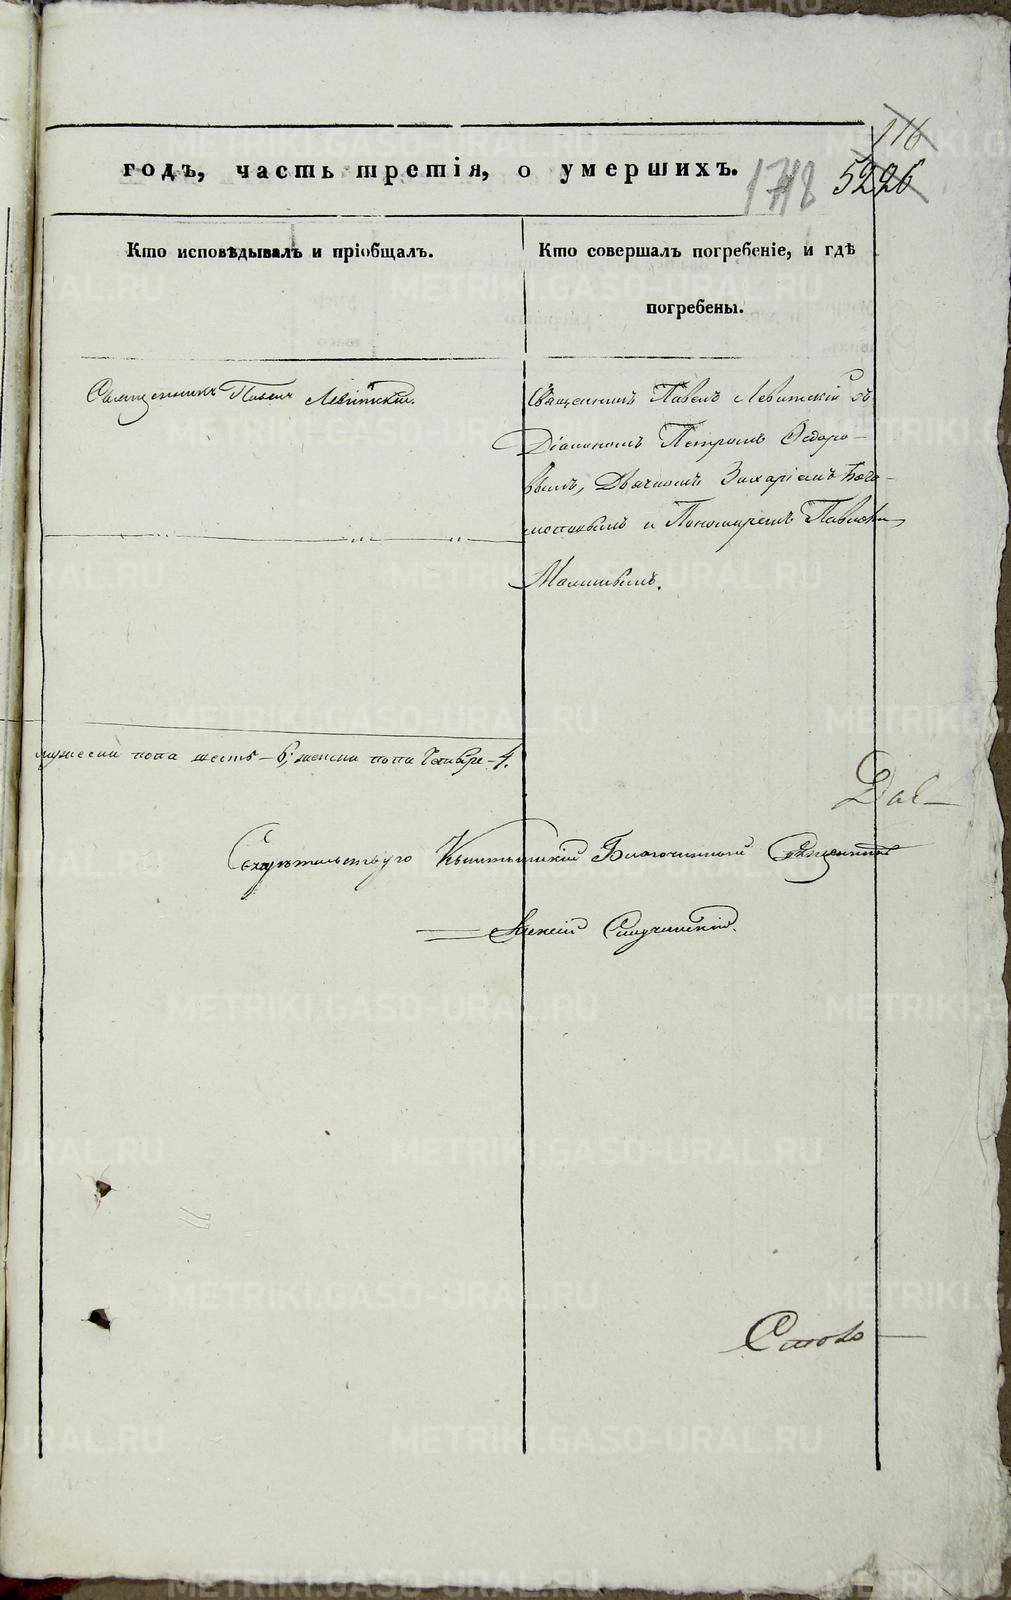 116
годъ, часть третія, о умершихъ.
1718 5226
Кто исповѣдывалъ и пріобщалъ.
Кто совершалъ погребеніе, и гдѣ
погребены.
Священникъ Павелъ Левитскій.
Священникъ Павелъ Левитскій съ
Діакономъ Петромъ Ѳедоро-
вымъ, Дьячкомъ Захаріемъ Бого-
и Пономаремъ
мужеска пола шесть - 6; женска пола Четыре - 4.
Свидѣтельствуго Кыштымскій Благочинный Священникъ
Алексій
METRIKI.GASO-URAL.RU